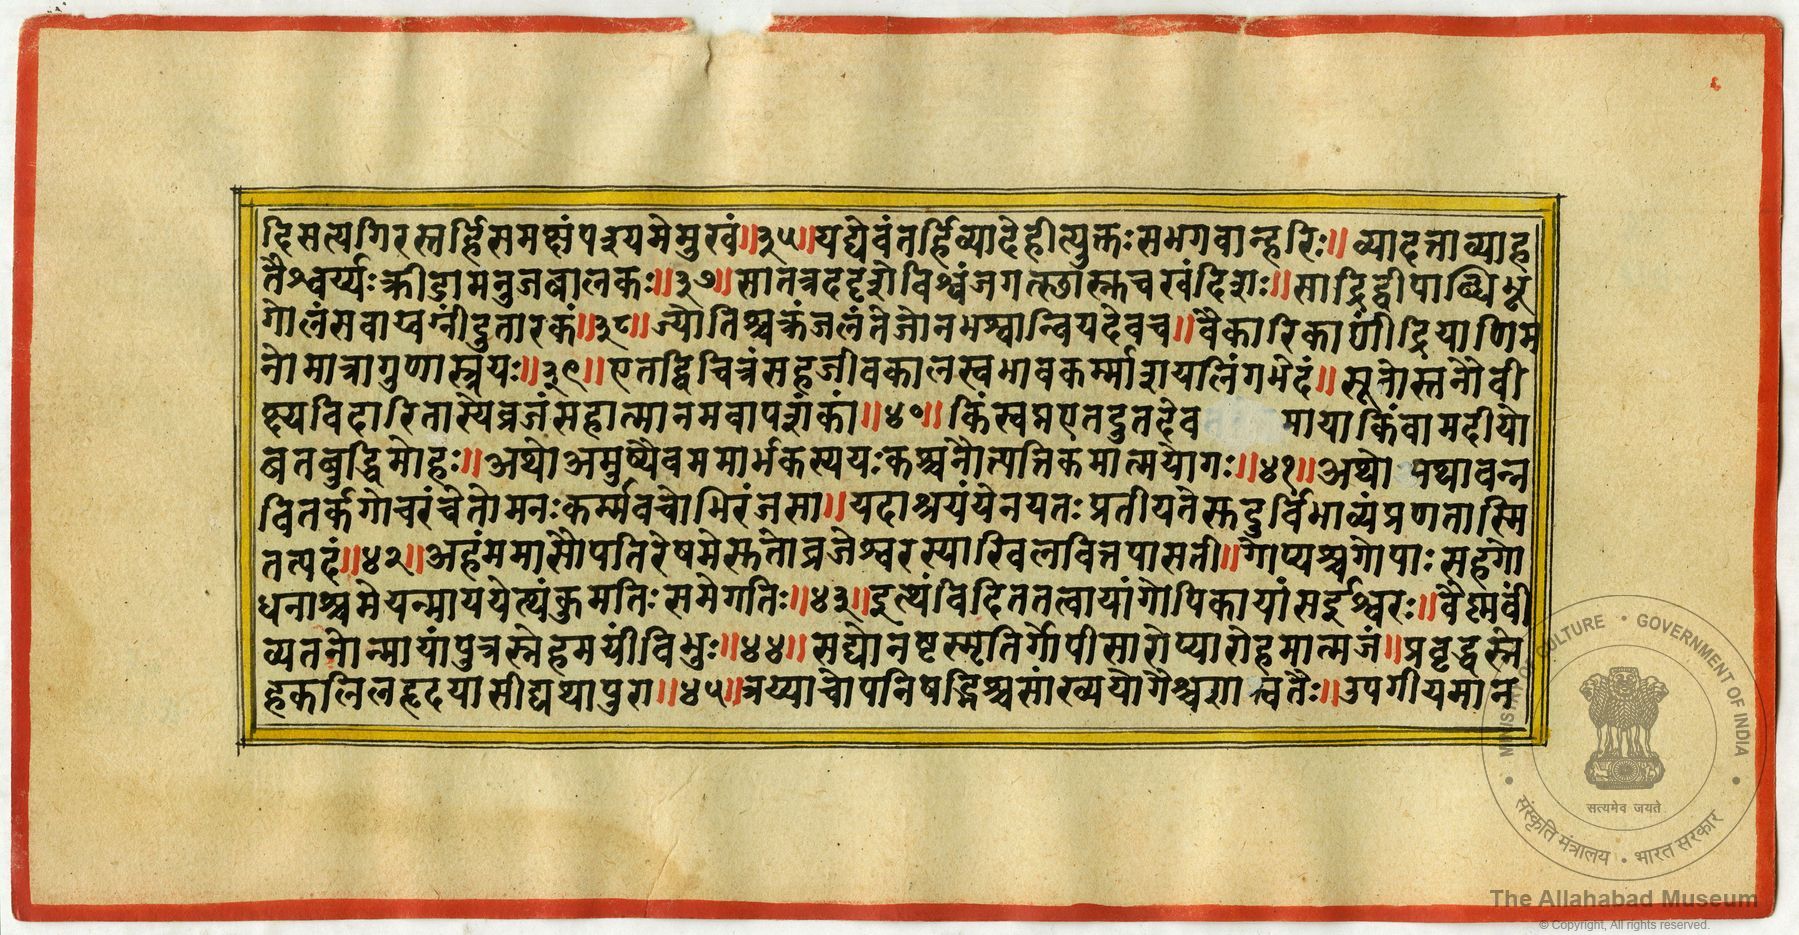 ६
दिसत्यगिरस्तर्हिसमक्षंपश्यमेमुखं॥३५॥यद्येवंतर्हिव्यादेहीत्युक्तःसभगवान्हरिः॥व्यादत्ताव्याह
तैश्वर्य्यःक्रीडामनुजबालकः॥३७॥सातत्रददृशेविश्वंजगत्स्छास्नुचखंदिशः॥साद्रिद्वीपाब्धिभू
गोलंसवाय्वग्नींदुतारकं॥३८॥ज्योतिश्चक्रंजलंतेजोनभश्वान्वियदेवच॥वैकारिकाणींद्रियाणिम
नोमात्रागुणास्त्रयः॥३९॥एतद्विचित्रंसहजीवकालस्वभावकर्म्माशयलिंगभेदं॥सूनोस्तनौवी
क्ष्यविदारितास्येव्रजंसहात्मानमवापशंकां॥४०॥किंस्वप्नएतदुतदेव मायाकिंवामदीयो
बतबुद्धिमोहः॥अथोअमुष्यैवममार्भकस्ययःकश्चनौत्पत्तिकमात्मयोगः॥४१॥अथो पथावन्न
वितर्कगोचरंचेतोमनःकर्म्मवचोभिरंजसा॥यदाश्रयंयेनयतःप्रतीयतेस्तदुर्विभाव्यंप्रणतास्मि
तत्पदं॥४२॥अहंममासौपतिरेषमेस्ततोव्रजेश्वरस्याखिलवित्तपासती॥गोप्यश्चगोपाःसहगो
धनाश्चमेयन्माययेत्थंकुमतिःसमेगतिः॥४३॥इत्थंविदिततत्वायांगोपिकायांसईश्वरः॥वैष्मवीं
व्यतनोन्मायांपुत्रस्नेहमयींविभुः॥४४॥सद्योनष्टस्मृतिर्गोपीसारोप्यारोहमात्मजं॥प्रवृद्धस्ने
हकलिलहृदयासीद्यथापुरा॥४५॥त्रय्याचोपनिषद्भिश्चसांख्ययोगैश्चशा त्वतैः॥उपगीयमान
MINISTRY OF CULTURE • GOVERNMENT OF INDIA
सत्यमेव जयते
संस्कृति मंत्रालय • भारत सरकार
The Allahabad Museum
© Copyright, All rights reserved.